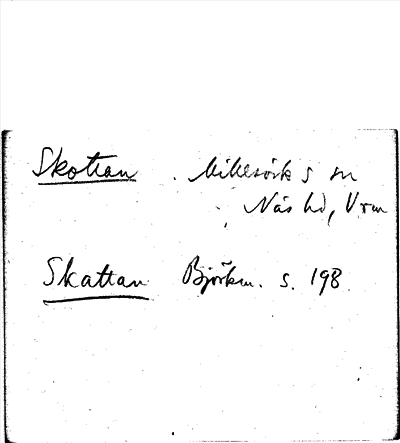 Skottan Millesviks sn
Näs hd, Vrm
Skattan Björkm. s. 198